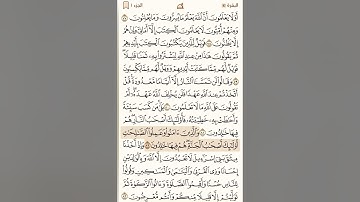 البقرة
الجزء ١
أَوَلَا يَعْلَمُونَ أَنَّ ٱللَّهَ يَعْلَمُ مَا يُسِرُّونَ وَمَا يُعْلِنُونَ
وَمِنْهُمْ أُمِّيُّونَ لَا يَعْلَمُونَ ٱلْكِتَٰبَ إِلَّآ أَمَانِىَّ وَإِنْ هُمْ
إِلَّا يَظُنُّونَ فَوَيْلٌ لِّلَّذِينَ يَكْتُبُونَ ٱلْكِتَٰبَ بِأَيْدِيهِمْ
ثُمَّ يَقُولُونَ هَٰذَا مِنْ عِندِ ٱللَّهِ لِيَشْتَرُوا۟ بِهِۦ ثَمَنًا قَلِيلًا
فَوَيْلٌ لَّهُم مِّمَّا كَتَبَتْ أَيْدِيهِمْ وَوَيْلٌ لَّهُم مِّمَّا يَكْسِبُونَ
وَقَالُوا۟ لَن تَمَسَّنَا ٱلنَّارُ إِلَّآ أَيَّامًا مَّعْدُودَةً قُلْ
أَتَّخَذْتُمْ عِندَ ٱللَّهِ عَهْدًا فَلَن يُخْلِفَ ٱللَّهُ عَهْدَهُۥٓ أَمْ
تَقُولُونَ عَلَى ٱللَّهِ مَا لَا تَعْلَمُونَ بَلَىٰ مَن كَسَبَ سَيِّئَةً
وَأَحَٰطَتْ بِهِۦ خَطِيٓـَٔتُهُۥ فَأُو۟لَٰٓئِكَ أَصْحَٰبُ ٱلنَّارِ هُمْ
فِيهَا خَٰلِدُونَ وَٱلَّذِينَ ءَامَنُوا۟ وَعَمِلُوا۟ ٱلصَّٰلِحَٰتِ
أُو۟لَٰٓئِكَ أَصْحَٰبُ ٱلْجَنَّةِ هُمْ فِيهَا خَٰلِدُونَ وَإِذْ أَخَذْنَا
مِيثَٰقَ بَنِىٓ إِسْرَٰٓءِيلَ لَا تَعْبُدُونَ إِلَّا ٱللَّهَ وَبِٱلْوَٰلِدَيْنِ
إِحْسَانًا وَذِى ٱلْقُرْبَىٰ وَٱلْيَتَٰمَىٰ وَٱلْمَسَٰكِينِ وَقُولُوا۟
لِلنَّاسِ حُسْنًا وَأَقِيمُوا۟ ٱلصَّلَوٰةَ وَءَاتُوا۟ ٱلزَّكَوٰةَ ثُمَّ
تَوَلَّيْتُمْ إِلَّا قَلِيلًا مِّنكُمْ وَأَنتُم مُّعْرِضُونَ